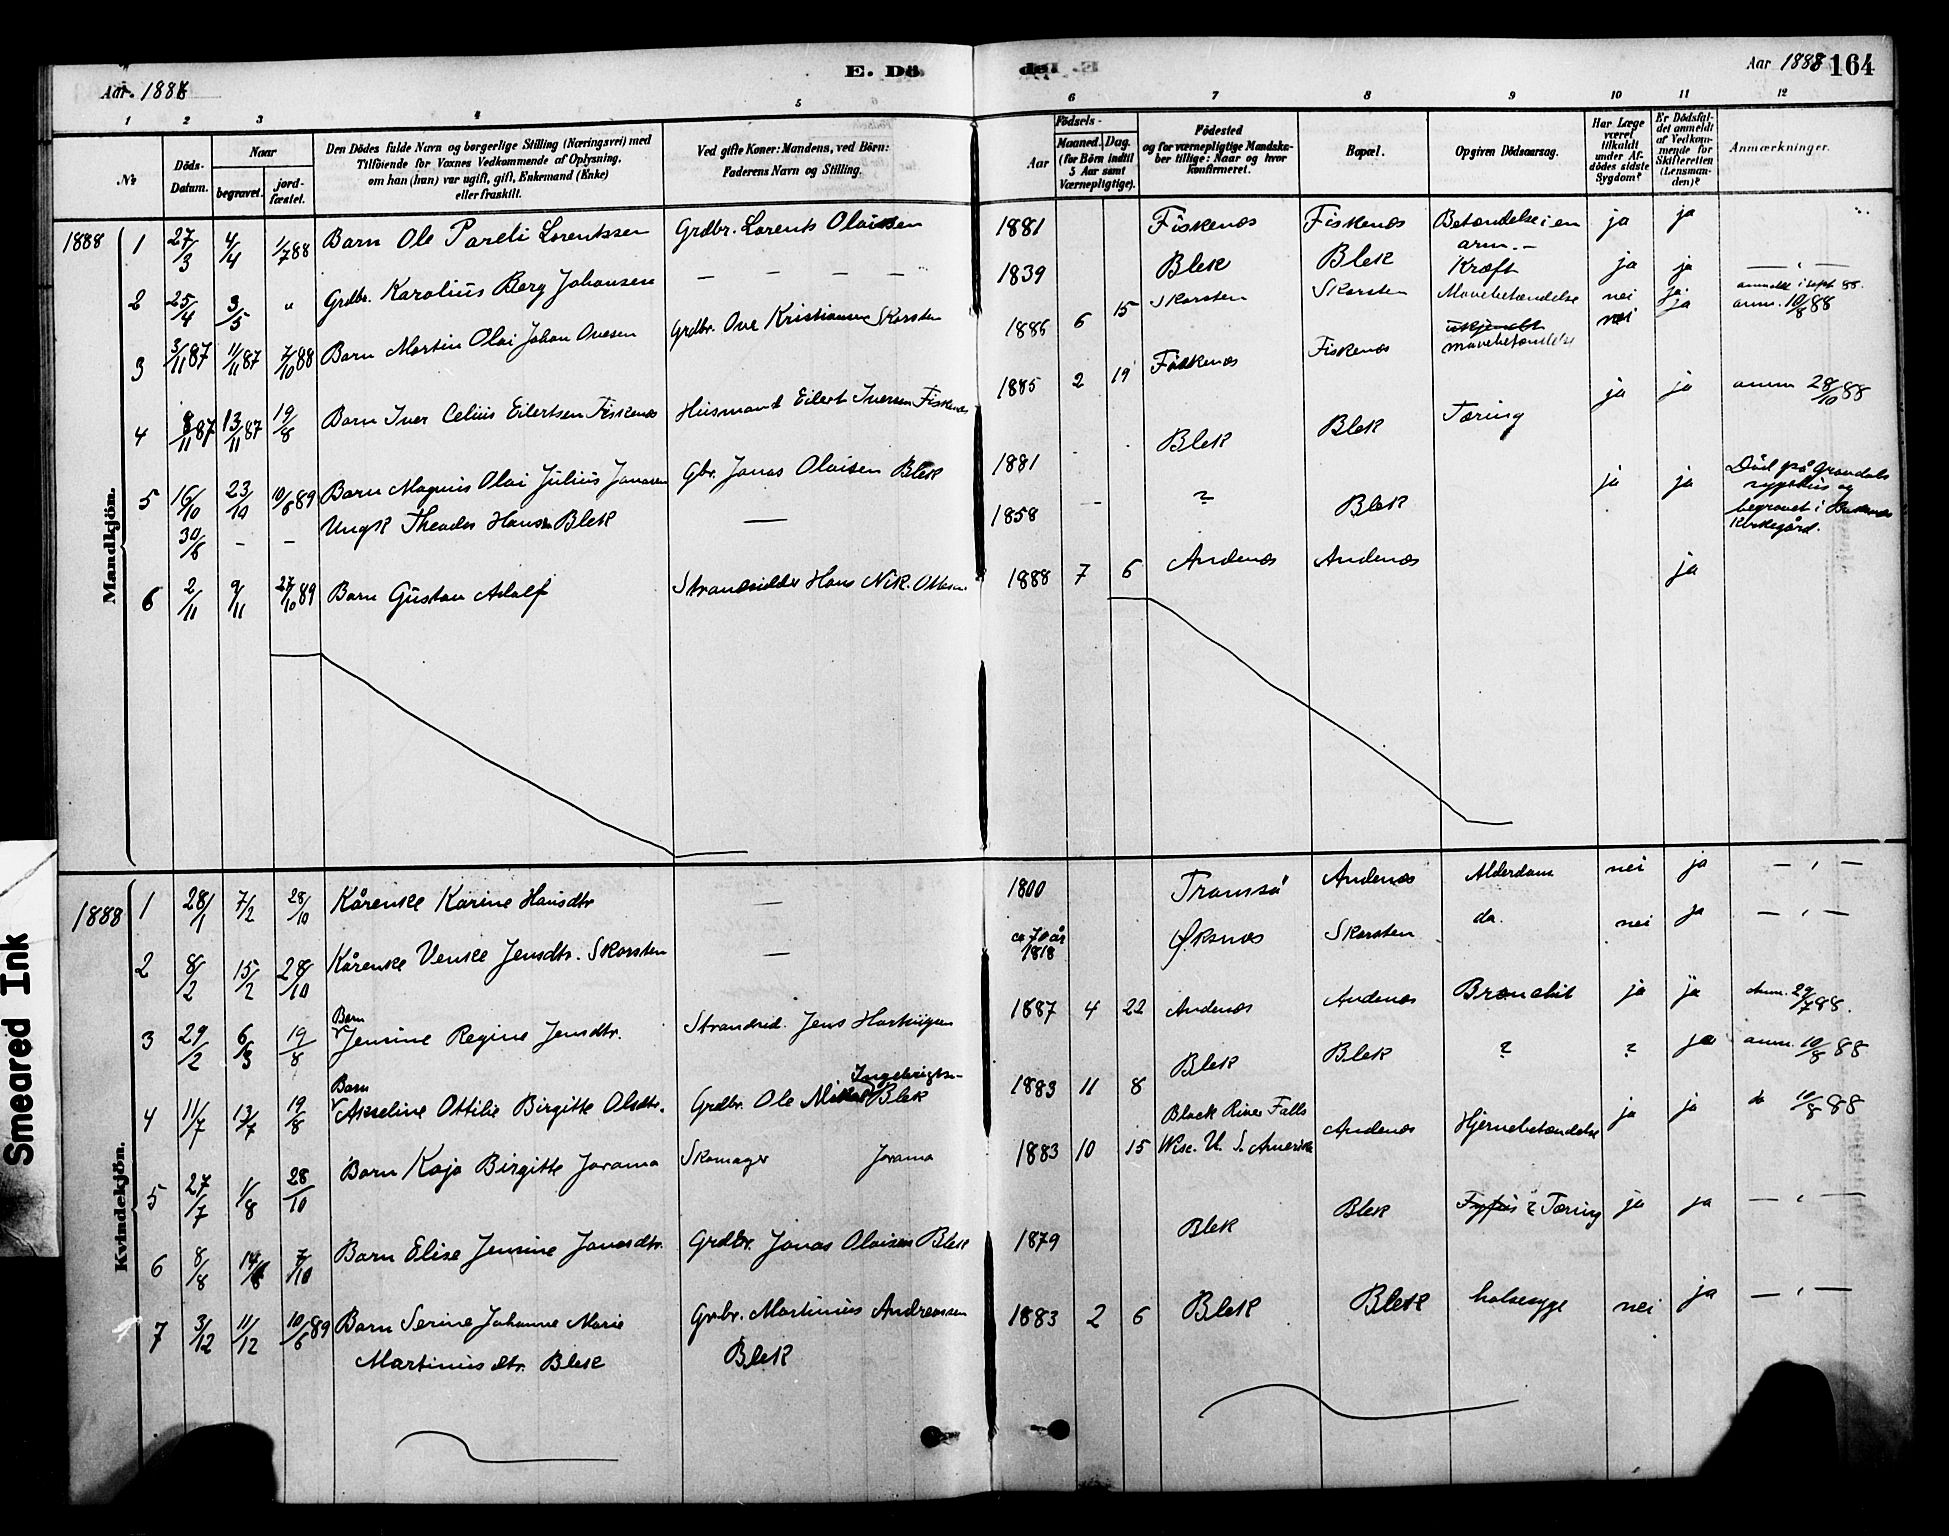 Aar. 1888
E. Dö
de
Aar 1888 164
1 2 3 4 5 6 7 8 9 10 11 12
No
Döds-Datum.
Naar
begravet.
jord-fæstet.
Den Dödes fulde Navn og borgerlige Stilling (Næringsvei) med
Tilföiende for Voxnes Vedkommende af Oplysning,
om han (hun) var ugift, gift, Enkemand (Enke)
eller fraskilt.
Ved gifte Koner: Mandens, ved Börn:
Faderens Navn og Stilling.
Födsels-
Aar
Maaned. Dag.
(for Börn indtil
5 Aar samt
Værnepligtige).
Födested
og for værnepligtige Mandska-
ber tillige: Naar og hvor
konfirmeret.
Bopæl.
Opgiven Dödsaarsag.
Har Læge
været
tilkaldt
under Af-
dødes sidste
Sygdom?
Er Dödsfal-
det anmeldt
af Vedkom-
mende for
Skifteretten
(Lensman-
den)?
Anmærkninger.
Mandkjön.
1888 1 27/3 4/4 1/7 88 Barn Ole Pareli Lorentssen Grdbr. Lorents Olaissen 1881 Fiskenæs Fiskenæs Betændelse i en arm. – ja ja
2 25/4 3/5 " Grdbr. Karolius Berg Johansen — — — — 1839 Blek Blek Kræft ja ja — " —
3 3/11 87 11/11 87 7/10 88 Barn Martin Olai Johan Ovesen Grdbr. Ove Kristiansen Skarsten 1886 6 15 Skarsten Skarsten Mavebetændelse nei ja anmeldt i sept 88.
4 8/11 87 13/11 87 19/8 Barn Iver Celius Eilertsen Fiskenæs Husmand Eilert Iversen Fiskenæs 1885 2 19 Fiskenæs Fiskenæs ukjendt mavebetændelse nei ja anm. 10/8 88
5 16/10 23/10 10/6 89 Barn Magnus Olai Julius Jonassen Gbr. Jonas Olaisen Blek 1881 Blek Blek Tæring ja ja anm 28/10 88
30/6 – – Ungk Theodor Hansen Blek — 1858 – ? Blek ja ja Död på Gravdals sygehus og begravet i Buksnæs Kirkegård.
6 2/11 9/11 27/10 89 Barn Gustav Adolf Strandsidder Hans Nik. Ottesen 1888 7 6 Andenæs Andenæs ja
Kvindekjön.
1888 1 28/1 7/2 28/10 Kårenke Karine Hansdtr — 1800 Tromsö Andenæs Alderdom nei ja — " —
2 8/2 15/2 28/10 Kårenke Venke Jensdtr. Skarsten — ca 70 år 1818 Øksnæs Skarsten do. nei ja — " —
3 29/2 6/3 19/8 Barn Jensine Regine Jensdtr. Strandsid. Jens Hartvigsen 1887 4 22 Andenæs Andenæs Bronchit ja ja Anm. 29/7 88.
4 11/7 13/7 19/8 Barn Akseline Ottilie Birgitte Olsdtr. Grdbr. Ole Mikal Ingebrigts- Blek 1883 11 8 Blek Blek ? ? ja anm. 10/8 88
5 27/7 1/8 28/10 Barn Kaja Birgitte Jorama Skomager Jorama 1883 10 15 Black River Falls Wisc. U. S. Amerika Andenæs Hjernebetændelse ja ja do 10/8 88
6 8/8 14/8 7/10 Barn Elise Jensine Jonasdtr. Grdbr. Jonas Olaisen Blek 1879 Blek Blek Tyfus ? Tæring ja ja — " —
7 3/12 11/12 10/6 89 Barn Serine Johanne Marie Martinusdtr. Blek Grdbr. Martinus Andreassen Blek 1883 2 6 Blek Blek halsesyge nei ja — " —
Smeared Ink